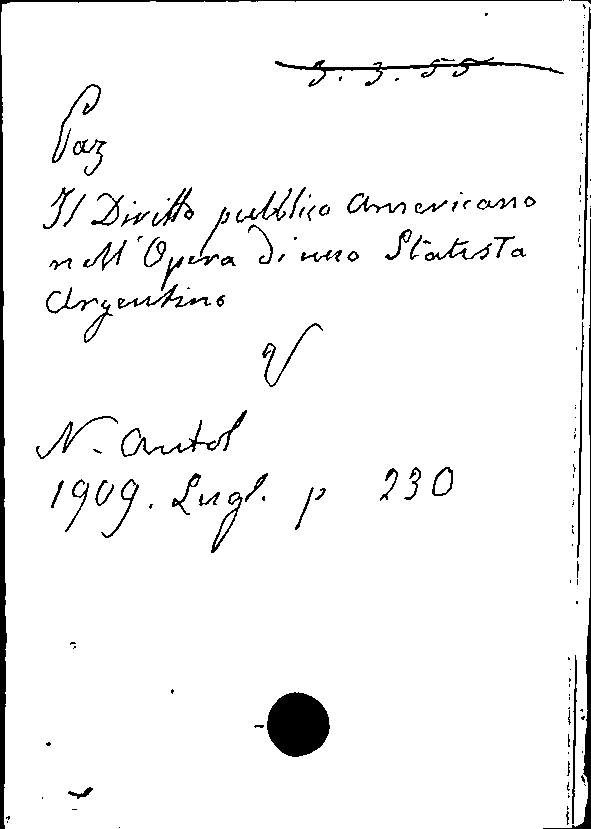 3. 3. 55
Paz
Il Diritto pubblico Americano
nell'Opera di uno Statista
Argentino
V
N. Antol
1909. Lugl. p 230